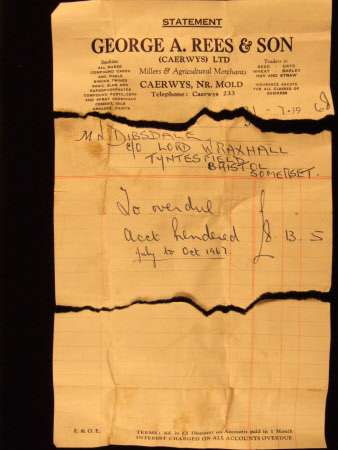 STATEMENT
GEORGE A. REES & SON
(CAERWYS) LTD
Millers & Agricultural Merchants
CAERWYS, NR. MOLD
Telephone: Caerwys 233
Stockists
ALL MAKES
COMPOUND CAKES
AND MEALS
BINDER TWINES
BASIC SLAG AND
SUPERPHOSPHATES
COMPOUND FERTILIZERS
AND SPRAY CHEMICALS
CEMENT, OILS
GREASES, PAINTS
Traders in
SEED OATS
WHEAT BARLEY
HAY AND STRAW
INSURANCE AGENTS
FOR ALL CLASSES OF
BUSINESS
31 - 7 - 19 68
Mr DIBSDALE
c/o LORD WRAXHALL
TYNTESFIELD
BRISTOL
SOMERSET.
To overdue £
acct rendered 8. 13. 5
July to Oct 1967.
E. & O. E.
TERMS: 6d. in £1 Discount on Accounts paid in 1 Month
INTEREST CHARGED ON ALL ACCOUNTS OVERDUE